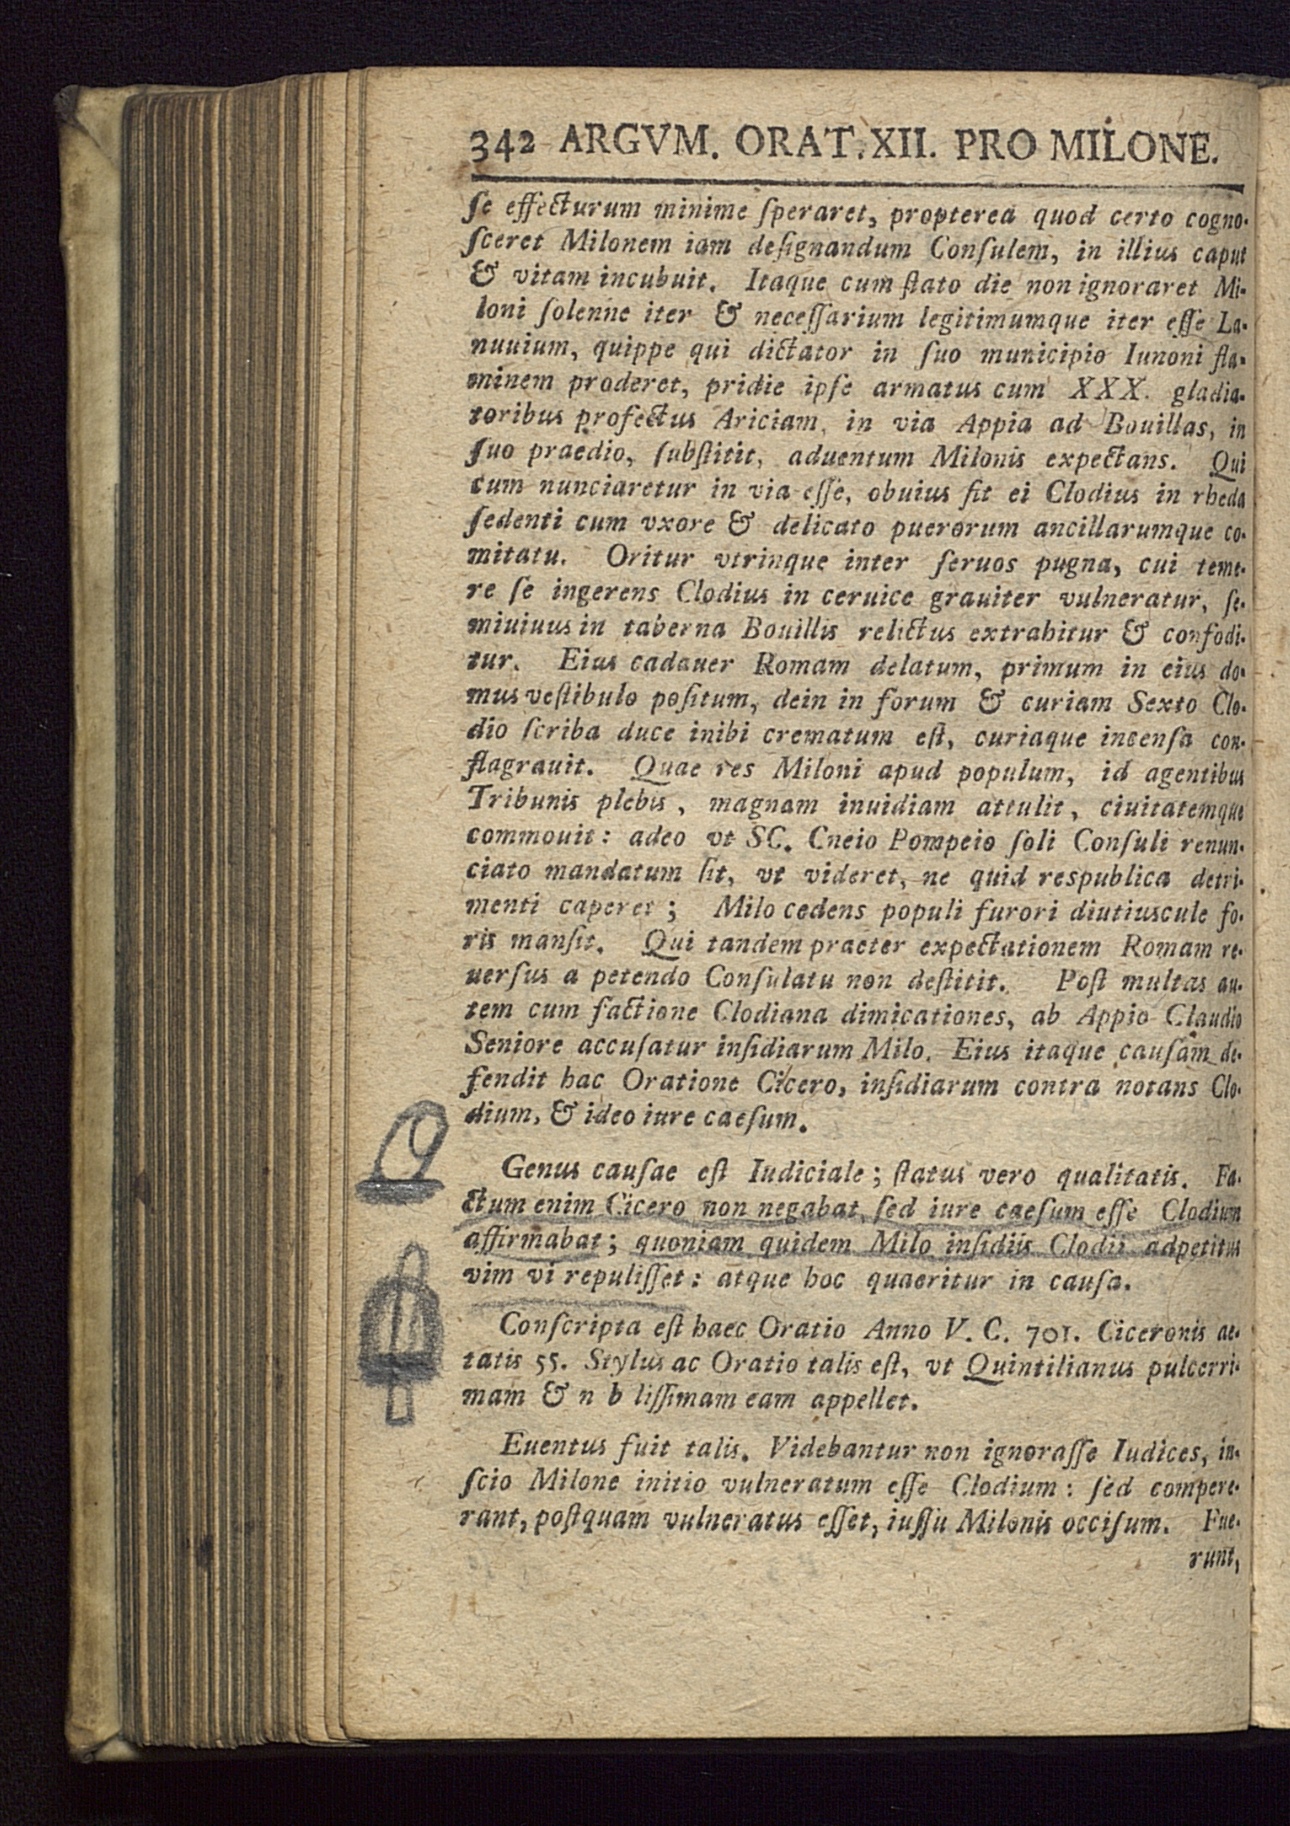 342 ARGVM. ORAT. XII. PRO MILONE.
ſe effecturum minime ſperaret, propterea quod certo cogno-
ſceret Milonem iam deſignandum Conſulem, in illius caput
& vitam incubuit. Itaque cum ſtato die non ignoraret Mi-
loni ſolenne iter & neceſſarium legitimumque iter eſſe La-
nuuium, quippe qui dictator in ſuo municipio Iunoni fla-
minem proderet, pridie ipſe armatus cum XXX. gladia-
toribus profectus Ariciam, in via Appia ad Bouillas, in
ſuo praedio, ſubſtitit, aduentum Milonis expectans. Qui
cum nunciaretur in via eſſe, obuius fit ei Clodius in rheda
ſedenti cum vxore & delicato puerorum ancillarumque co-
mitatu. Oritur vtrinque inter ſeruos pugna, cui teme-
re ſe ingerens Clodius in ceruice grauiter vulneratur, ſe-
miuiuus in taberna Bouillis relictus extrahitur & confodi-
tur. Eius cadauer Romam delatum, primum in eius do-
mus veſtibulo poſitum, dein in forum & curiam Sexto Clo-
dio ſcriba duce inibi crematum eſt, curiaque incenſa con-
flagrauit. Quae res Miloni apud populum, id agentibus
Tribunis plebis, magnam inuidiam attulit, ciuitatemque
commouit: adeo vt SC. Cneio Pompeio ſoli Conſuli renun-
ciato mandatum ſit, vt videret, ne quid respublica detri-
menti caperet; Milo cedens populi furori diutiuscule fo-
ris manſit. Qui tandem praeter expectationem Romam re-
uerſus a petendo Conſulatu non deſtitit. Poſt multas au-
tem cum factione Clodiana dimicationes, ab Appio Claudio
Seniore accuſatur inſidiarum Milo. Eius itaque cauſam de-
fendit hac Oratione Cicero, inſidiarum contra notans Clo-
dium, & ideo iure caeſum.
Genus cauſae eſt Iudiciale; ſtatus vero qualitatis. Fa-
ctum enim Cicero non negabat, ſed iure caeſum eſſe Clodium
affirmabat; quoniam quidem Milo inſidiis Clodii adpetitus
vim vi repuliſſet: atque hoc quaeritur in cauſa.
Conſcripta eſt haec Oratio Anno V. C. 701. Ciceronis ae-
tatis 55. Stylus ac Oratio talis eſt, vt Quintilianus pulcerri-
mam & n b liſſimam eam appellet.
Euentus fuit talis. Videbantur non ignoraſſe Iudices, in-
ſcio Milone initio vulneratum eſſe Clodium: ſed compere-
rant, poſtquam vulneratus eſſet, iuſſu Milonis occiſum. Fue-
runt,